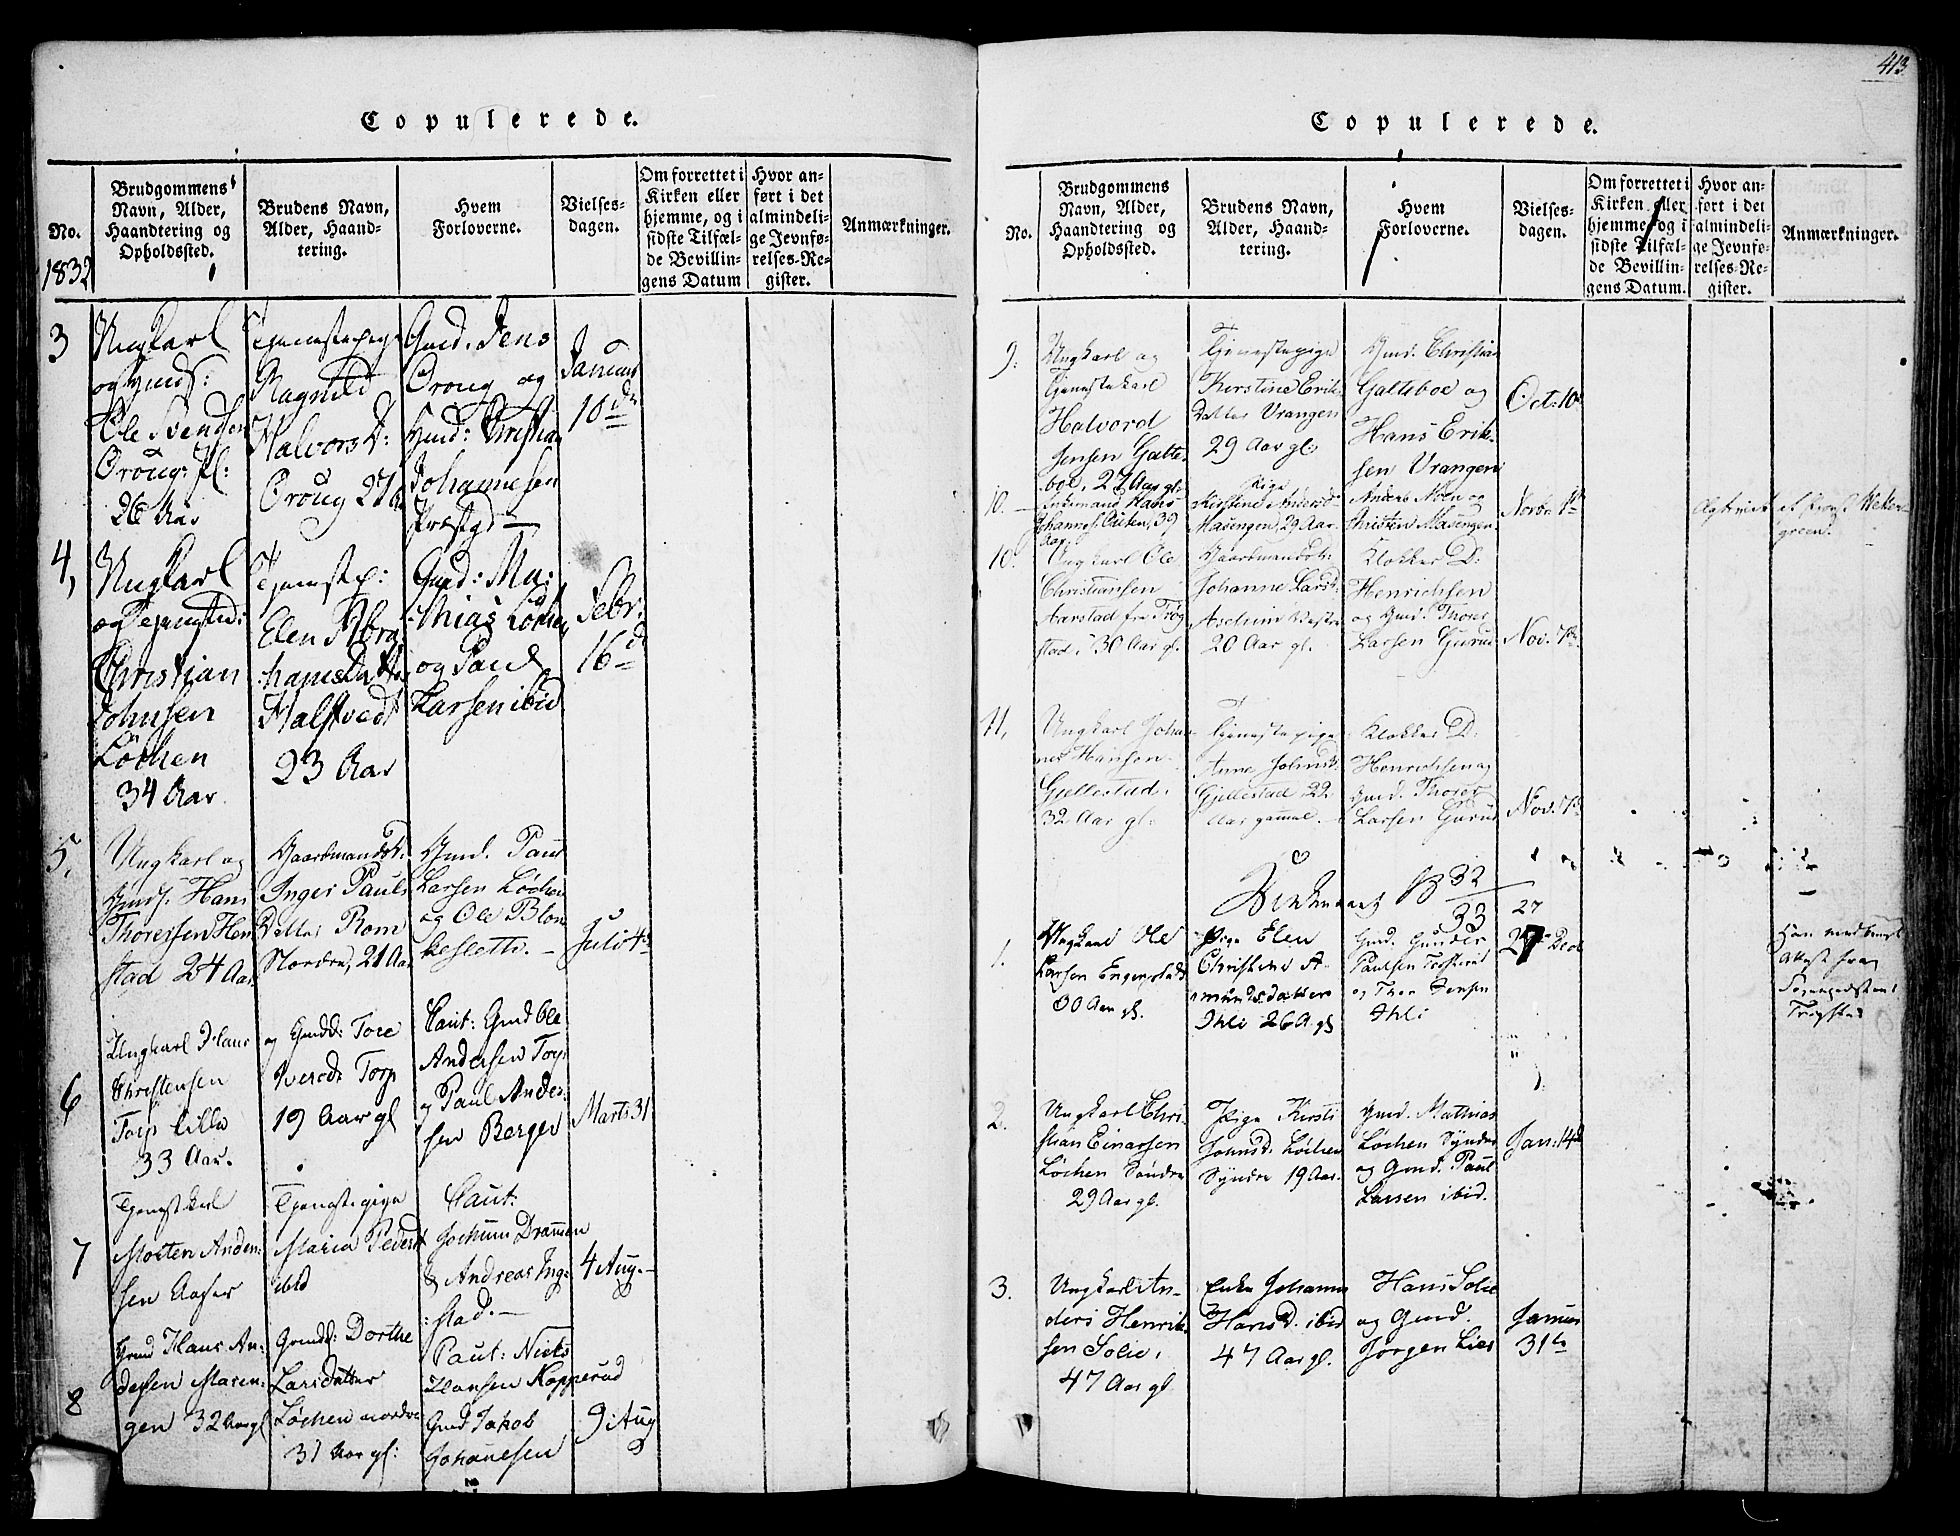 Copulerede.
No.
1832
Brudgommens Navn, Alder, Haandtering og Opholdssted.
Brudens Navn, Alder, Haandtering.
Hvem Forloverne.
Vielsesdagen.
Om forrettet i Kirken eller hjemme, og i sidste Tilfælde Bevillingens Datum
Hvor anført i det almindelige Jevnførelses-Register.
Anmærkninger.
3
Ungkarl
og Gmds:
Ole Svendsen
Oroug
26 Aar
Tjenestepige
Ragnild
Halvorsd:
Oroug 27
Gmd. Jens
Oroug og
Gmd: Christian
Johannesen
Januar
10de
4,
Ungkarl
Christian
Johnsen
Löchen
34 Aar
Tjenestep:
Elen Abra
hamsdatter
Halstvedt
23 Aar
Gmd: Ma:
thias Löchen
og Paul
Larsen ibid
Febr:
16de
5,
Ungkarl og
Gmds. Hans
Thoresen Hen
stad 24 Aar
Gaardmandsd:
Inger Pauls
Datter Rom
Nordre, 21 Aar
Gmd. Paul
Larsen Löchen
og Ole Blom
kesletts. —
Juli 4de
6
Ungkarl Hans
Christensen
Torp Lille
33 Aar.
og Gmdd: Tore
Iversdr Torp
19 Aar gl
Caut: Gmd Ole
Andersen Torp
og Paul Ander
sen Berger
Marts 31
7
Tjenestkarl
Morten Ander:
sen Aaser
Tjenestepige
Maria Pedersd
ibid
Caut:
Jochum Drammen
& Andreas Ing:
:stad. —
4 Aug. —
8
Gmd Hans An
dersen Masen:
gen 32 Aar gl
Gmdd: Dorthe
Larsdatter
Löchen nordre
31 Aar gl:
Caut: Niels
Hansen Kopperud
Gmd Jakob
Johannesen
9 Aug
413
Copulerede.
No.
Brudgommens Navn, Alder, Haandtering og Opholdssted.
Brudens Navn, Alder, Haandtering.
Hvem Forloverne.
Vielsesdagen.
Om forrettet i Kirken eller hjemme, og i sidste Tilfælde Bevillingens Datum.
Hvor anført i det almindelige Jevnførelses-Register.
Anmærkninger.
9.
Ungkarl og
Tjenestekarl
Halvord
Jensen Galte
boe, 27 Aar gl:
Tjenestepige
Kerstine Eriks
Datter Vrangen
29 Aar gl:
Gmd: Christian
Galteboe og
Hans Erik
sen Vrangen
Oct: 10
10.
Enkemand Hans
Johannes. 39
Aar.
Pige
Kirstine Andersd
Masengen, 29 Aar
Anders Moen og
Christen Masengen
Novbr 1ste
10.
Ungkarl Ole
Christiansen
Aarstad fra Trög
stad, 30 Aar gl.
Gaardmandsd:
Johanne Larsd:
Aschim Vestre
20 Aar gl.
Klokker D:
Henrichsen
og Gmd. Thorer
Larsen Gurud
Nov. 7de
11,
Ungkarl Johan
nes Hansen
Gjellestad,
32 Aar gl:
Tjenestepige
Anne Johnsd:
Gjellestad 22
Aar gammel. —
Klokker D:
Henrichsen og
Gmd. Thorer
Larsen Gurud
Nov. 7de
32
33
1.
Ungkarl Ole
Larsen Engerstad
30 Aar gl.
Pige Elen
Christine A-
mundsdatter
Ihli 26 A. gl
Gmd. Gunder
Paulsen
og Thor Jensen
Ihli
27
27 Decb
Attest fra
Trögstad
2.
Ungkarl Chri
stian Einarsen
Löchen Söndre
29 Aar gl.
Pige Kirsti
Johnsd. Löchen
Syndre 19 Aar.
Gmd. Mathias
Löchen Syndre
og Gmd. Paul
Larsen ibid.
Jan: 14de
3.
Ungkarl An-
ders Henrik
sen Solie,
47 Aar gl
Enke Johanne
Hansd. ibid
47 Aar gl.
Hans Solie
og Gmd.
Jörgen Lier
Januar
31te